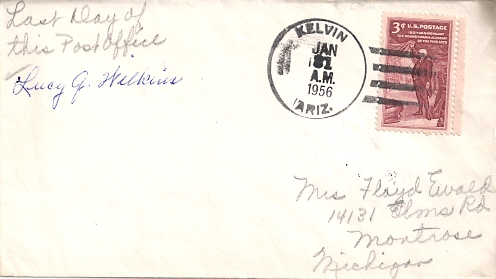 Last Day of
this Post Office
Lucy J. Wilkins
KELVIN
JAN
31
A.M.
1956
ARIZ.
3¢ U.S. POSTAGE
Mrs Floyd Ewald
14131 Elms Rd
Montrose
Michigan